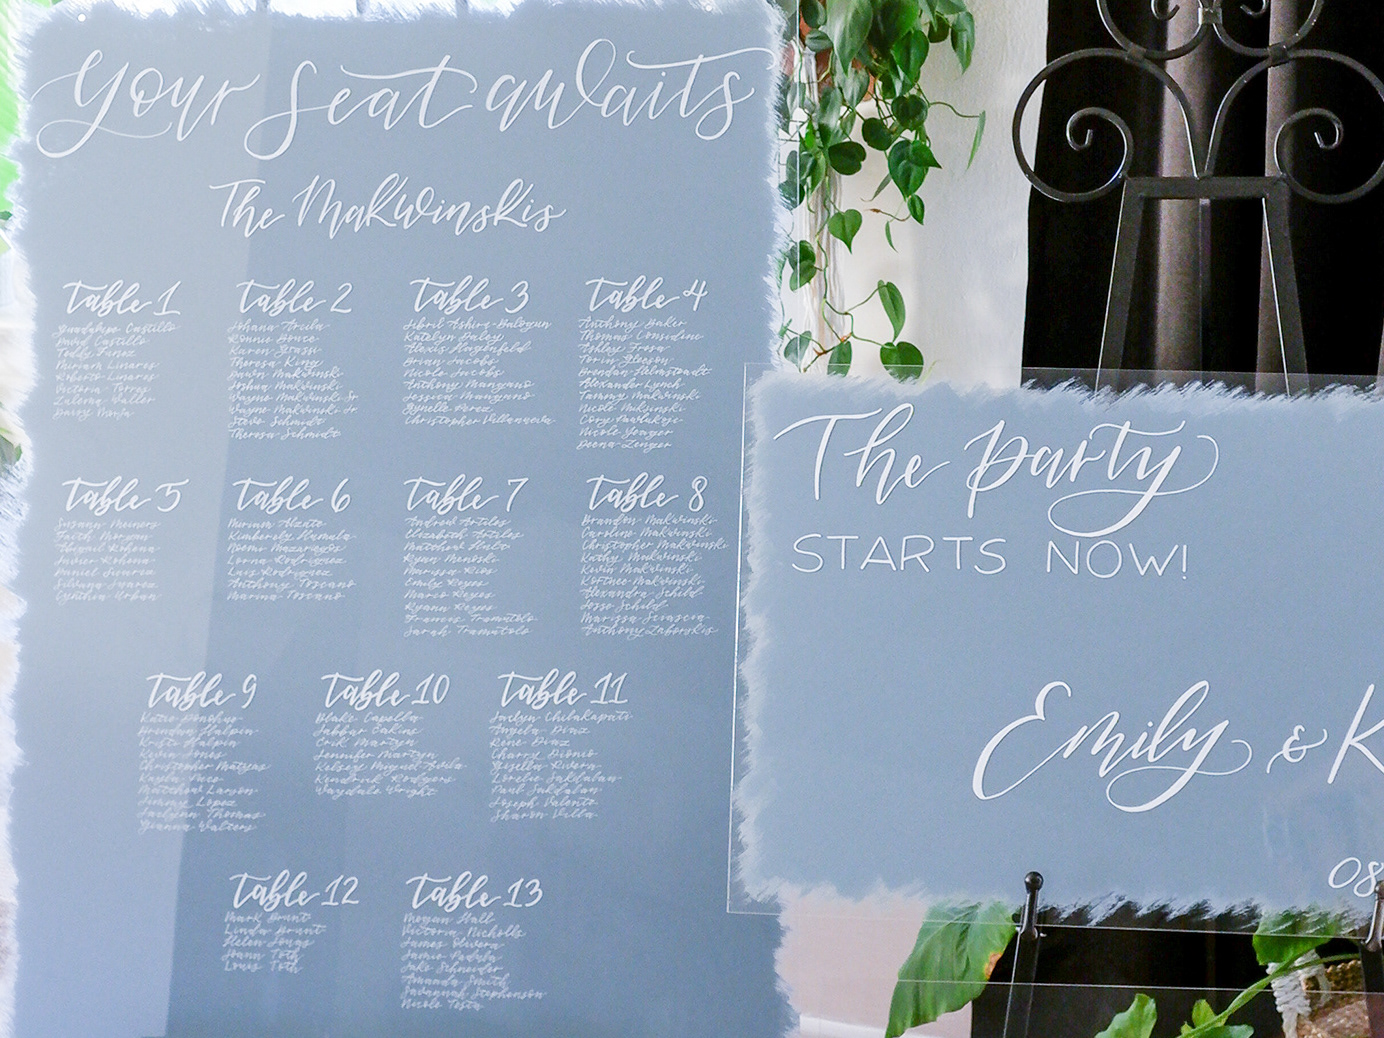 your seat awaits
The Makwinskis
Table 1
Guadalupe Castillo
David Castillo
Teddy Funez
Miriam Linares
Roberto Linares
Victoria Tyron
Zulema Valler
Table 2
Johana Arcila
Karen Grassi
Theresa King
Joshua Makwinski
Wayne Makwinski Sr
Wayne Makwinski Jr
Steve Schmidt
Theresa Schmidt
Table 3
Jibril Ashiru-Balogun
Katelyn Daley
Nicole Jacobs
Anthony Mangano
Jessica Mangano
Christopher Villanueva
Table 4
Anthony Baker
Thomas Considine
Ashley Frosa
Torin Gleeson
Brendan Helmstandt
Alexander Lynch
Tammy Makwinski
Nicole Makwinski
Nicole Yonger
Deena Zenger
Table 5
Susann Meiners
Faith Morgan
Abigail Rohena
Javier Rohena
Daniel Suarez
Silvana Suarez
Cynthia Urban
Table 6
Miriam Alzate
Kimberely Hamula
Noemi Mazariegos
Lorna Rodriguez
Luis Rodriguez
Anthony Toscano
Marina Toscano
Table 7
Andrew Artiles
Elizabeth Artiles
Ryan Menoski
Emily Reyes
Marco Reyes
Ryann Reyes
Frances Tramutolo
Sarah Tramutolo
Table 8
Brandon Makwinski
Caroline Makwinski
Christopher Makwinski
Kathy Makwinski
Kevin Makwinski
Kortnee Makwinski
Alexandra Schild
Jesse Schild
Marissa Scrascia
Anthony Zaborskis
Table 9
Katie Donohue
Brendan Halpin
Kristi Halpin
Kevin Jones
Christopher Matyas
Kayla Pace
Matthew Larson
Jimmy Lopez
Jaclynn Thomas
Gianna Walters
Table 10
Blake Capella
Jabbar Eakins
Erik Martyn
Jennifer Martyn
Kelsey Miguel Avila
Kendrick Rodgers
Waydale Wright
Table 11
Jaclyn Chilakapati
Angela Diaz
Rene Diaz
Cherry Dionio
Giselle Rivera
Lorelie Sakdalan
Paul Sakdalan
Joseph Valente
Sharon Villa
Table 12
Mark Brunt
Linda Brunt
Helen Jonas
Joann Toth
Louis Toth
Table 13
Megan Hall
Victoria Nicholls
James Olivera
Jamie Padula
Jake Schneider
Amanda Smith
Savannah Stephenson
Nicole Testa
The party
STARTS NOW!
Emily & K
08